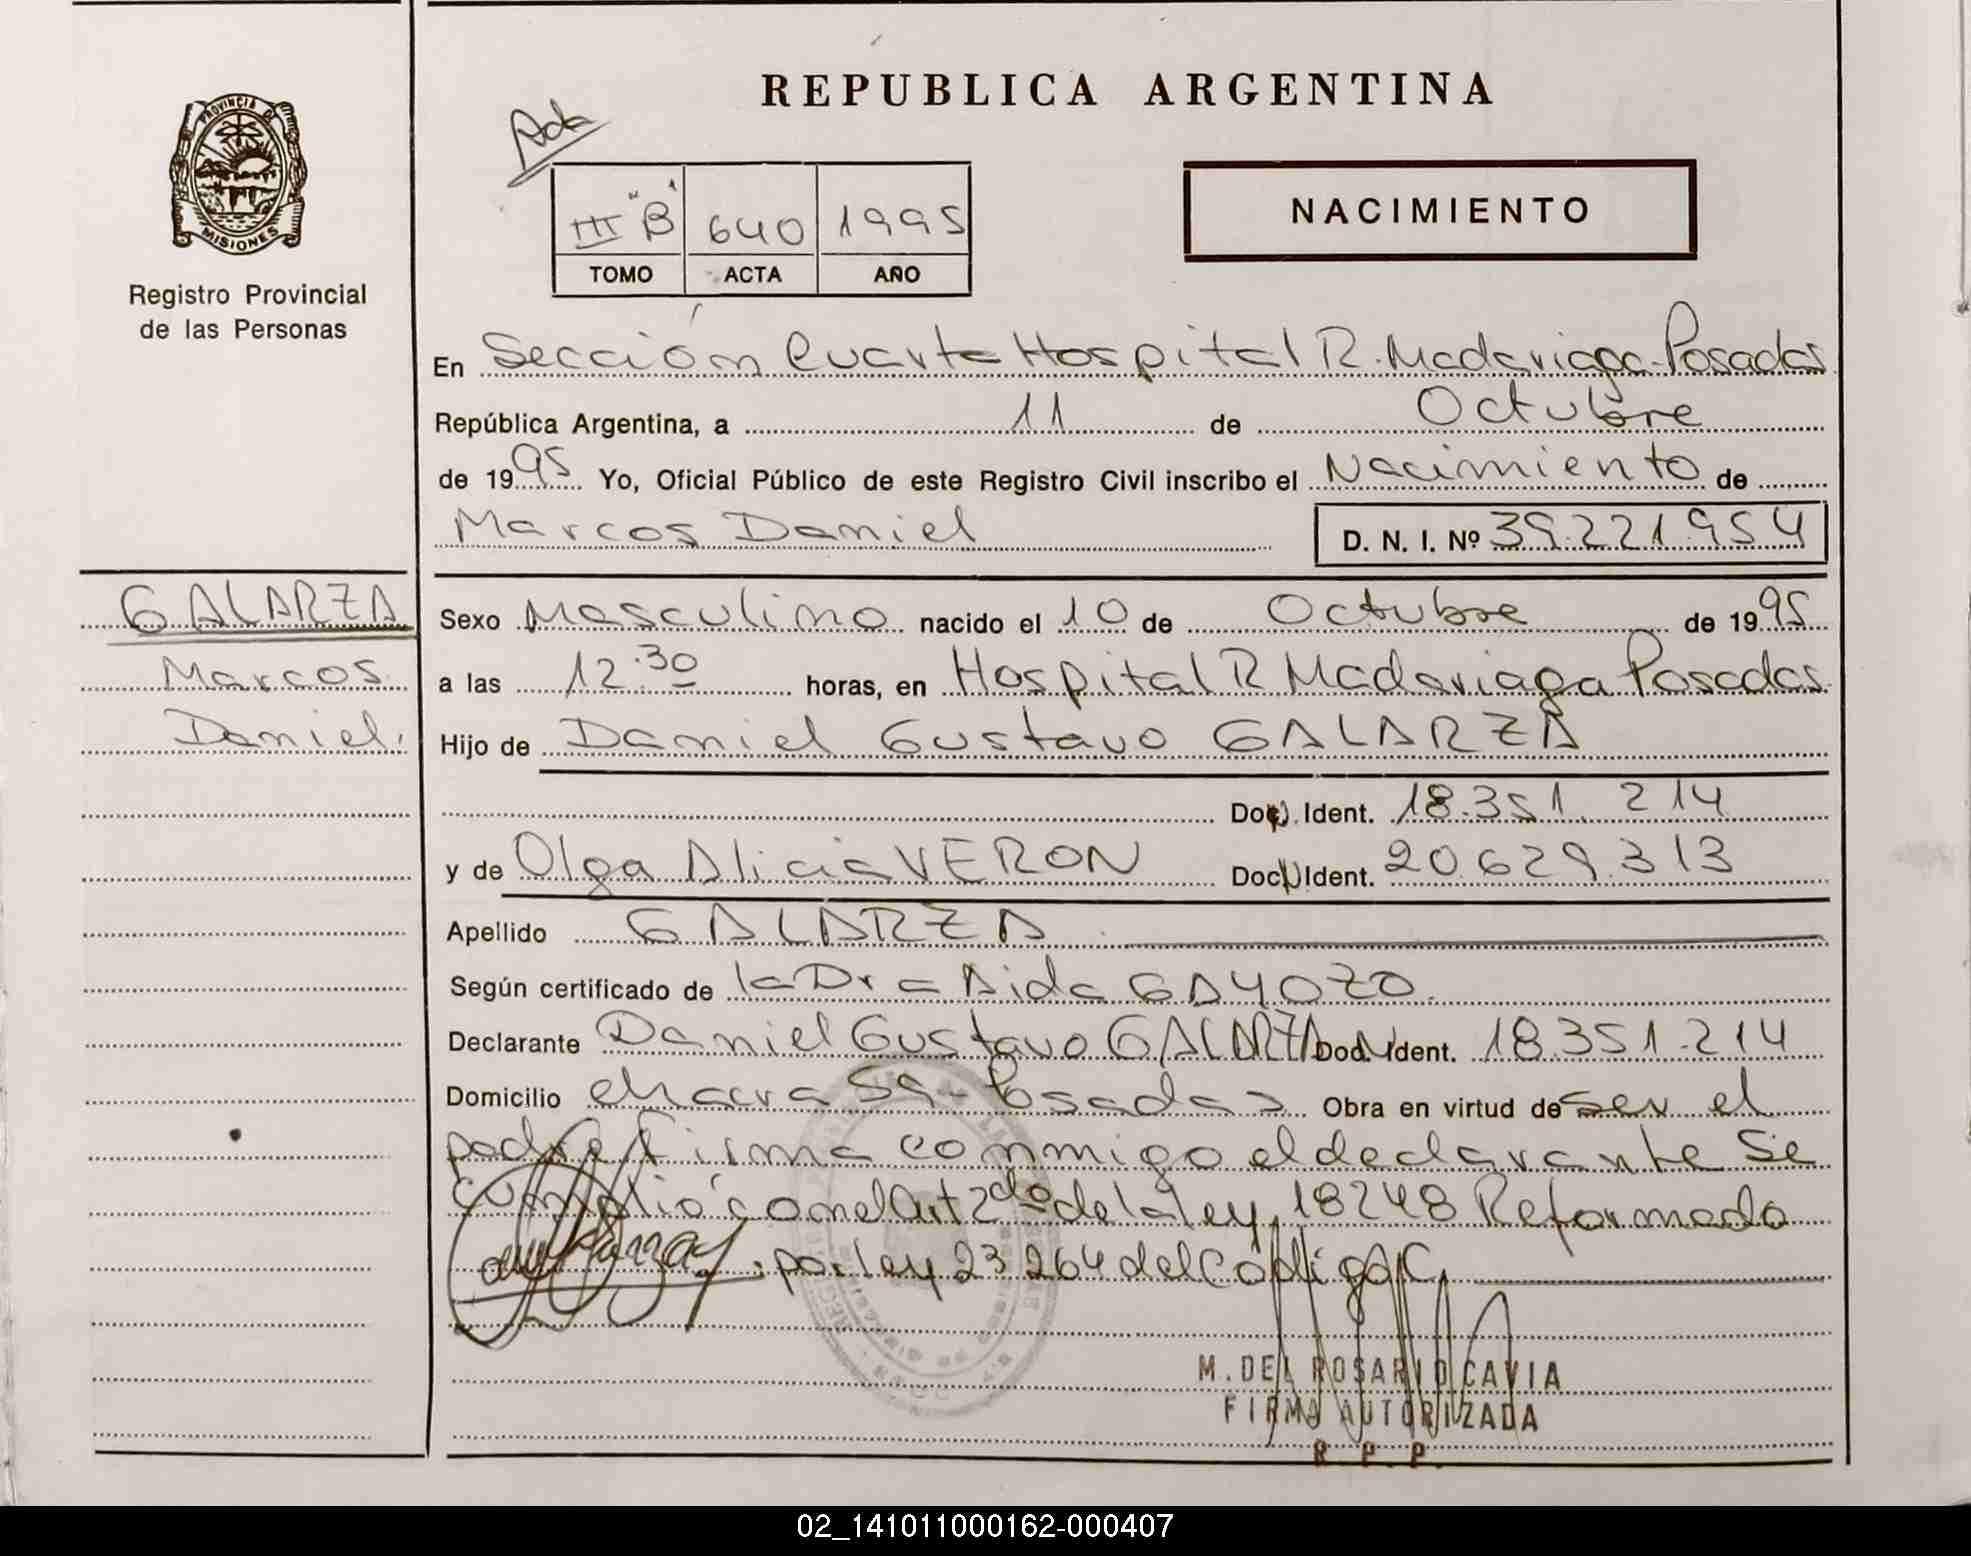 PROVINCIA DE
MISIONES
Registro Provincial
de las Personas
GALARZA
Marcos
Daniel.
REPUBLICA ARGENTINA
Acta
III "B" 640 1995
TOMO ACTA AÑO
NACIMIENTO
En Sección Cuarta Hospital R. Madariaga - Posadas
República Argentina, a 11 de Octubre
de 1995 Yo, Oficial Público de este Registro Civil inscribo el Nacimiento de
Marcos Daniel D. N. I. Nº 39.221.954
Sexo Masculino nacido el 10 de Octubre de 1995
a las 12.30 horas, en Hospital R Madariaga Posadas
Hijo de Daniel Gustavo GALARZA
Doc. Ident. 18.351.214
y de Olga Alicia VERON Doc. Ident. 20.629.313
Apellido GALARZA
Según certificado de la Dra Aida GAYOZO
Declarante Daniel Gustavo GALARZA Doc. Ident. 18.351.214
Domicilio chacra 59 - Posadas Obra en virtud de ser el
padre firma conmigo el declarante Se
cumplió con el Art 2do de la ley 18248 Reformado
por ley 23264 del Código C.
M. DEL ROSARIO CAVIA
FIRMA AUTORIZADA
R. P. P.
02_141011000162-000407